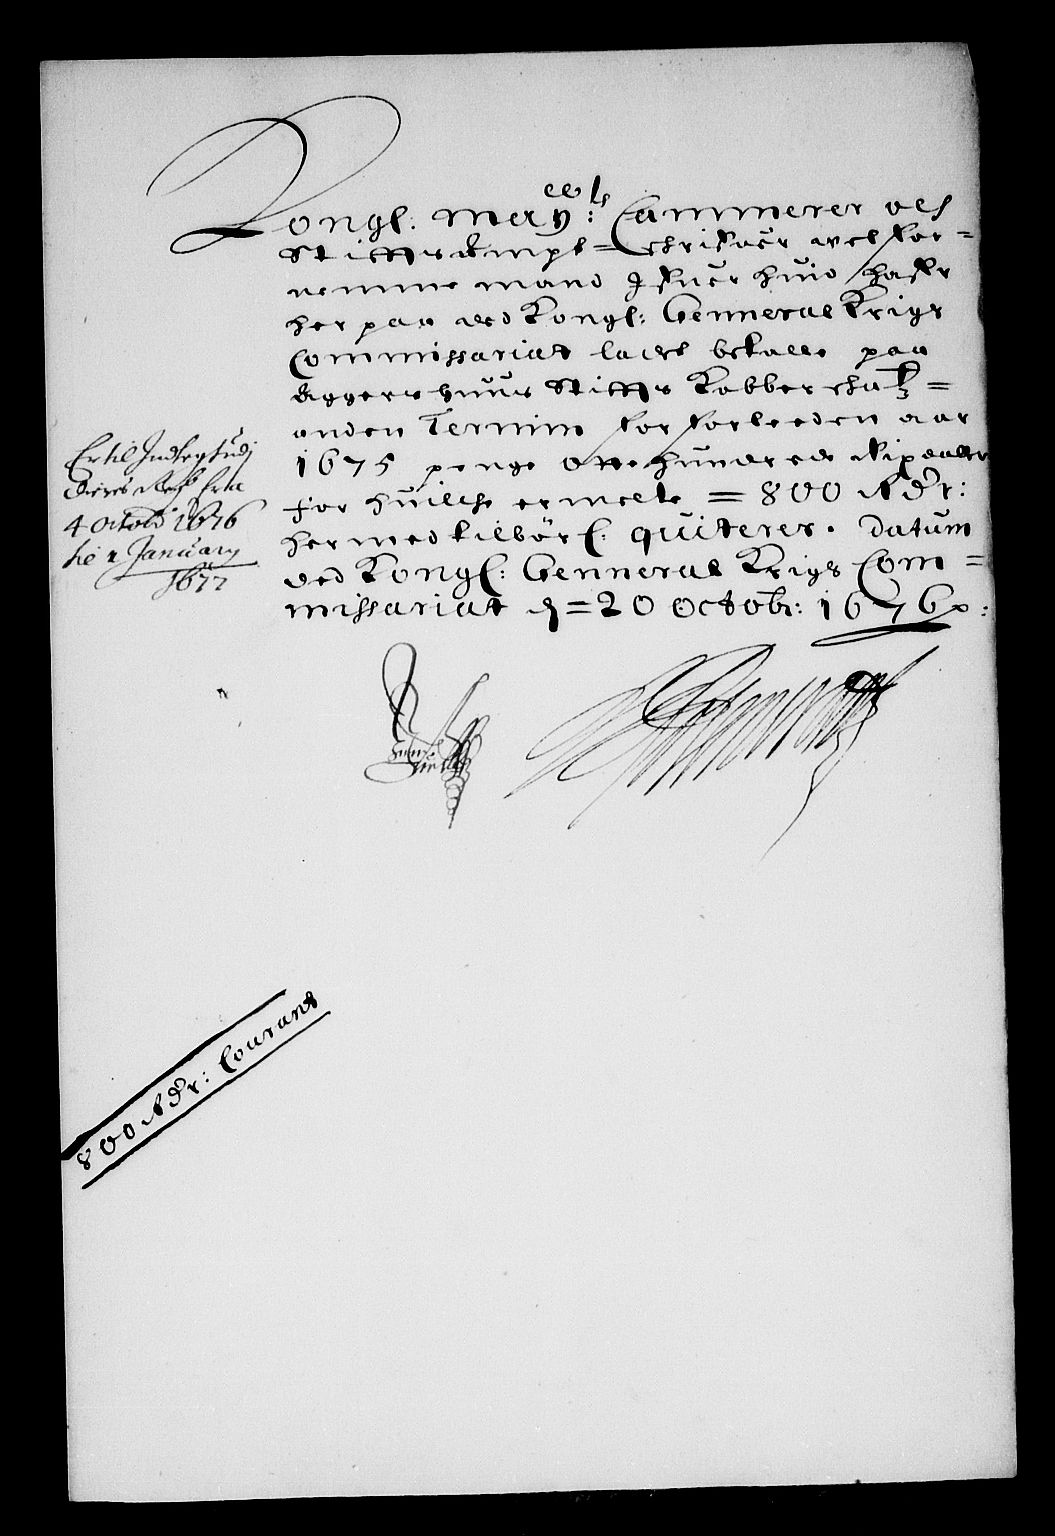 Kongl: Mayẏ: eels Cammerer oc
Stiffts Ampt= Schrifuer velfor=
nemme mand Ifuer Huid, hafr
her paa ved Kongl: Genneral Krigs
Commissariat ladet betalle paa
Aggershuus Stiffts Kobberschatz=
anden Termin for forleeden aar
1675 penge Otte hundrede Rixdaler
for huilche ermelte = 800 Rdr:
hermed tilbörl: quiteres. Datum
ved Kongl: Genneral Krigs Com=
missariat d= 20 Octobr: 1676 p:
Er til Indtegt udj
deres Regsk fra
4 Octobr 1676
til 1 January
1677
800 Rdr: Courant